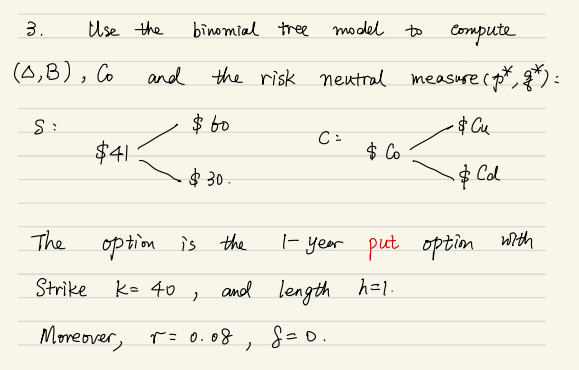 3. Use the binomial tree model to compute
(Δ,B), C₀ and the risk neutral measure (p*, q*):
S: $41 $60 $30.
C: $C₀ $Cu $Cd
The option is the 1-year put option with
Strike k= 40, and length h=1.
Moreover, r= 0.08, δ=0.